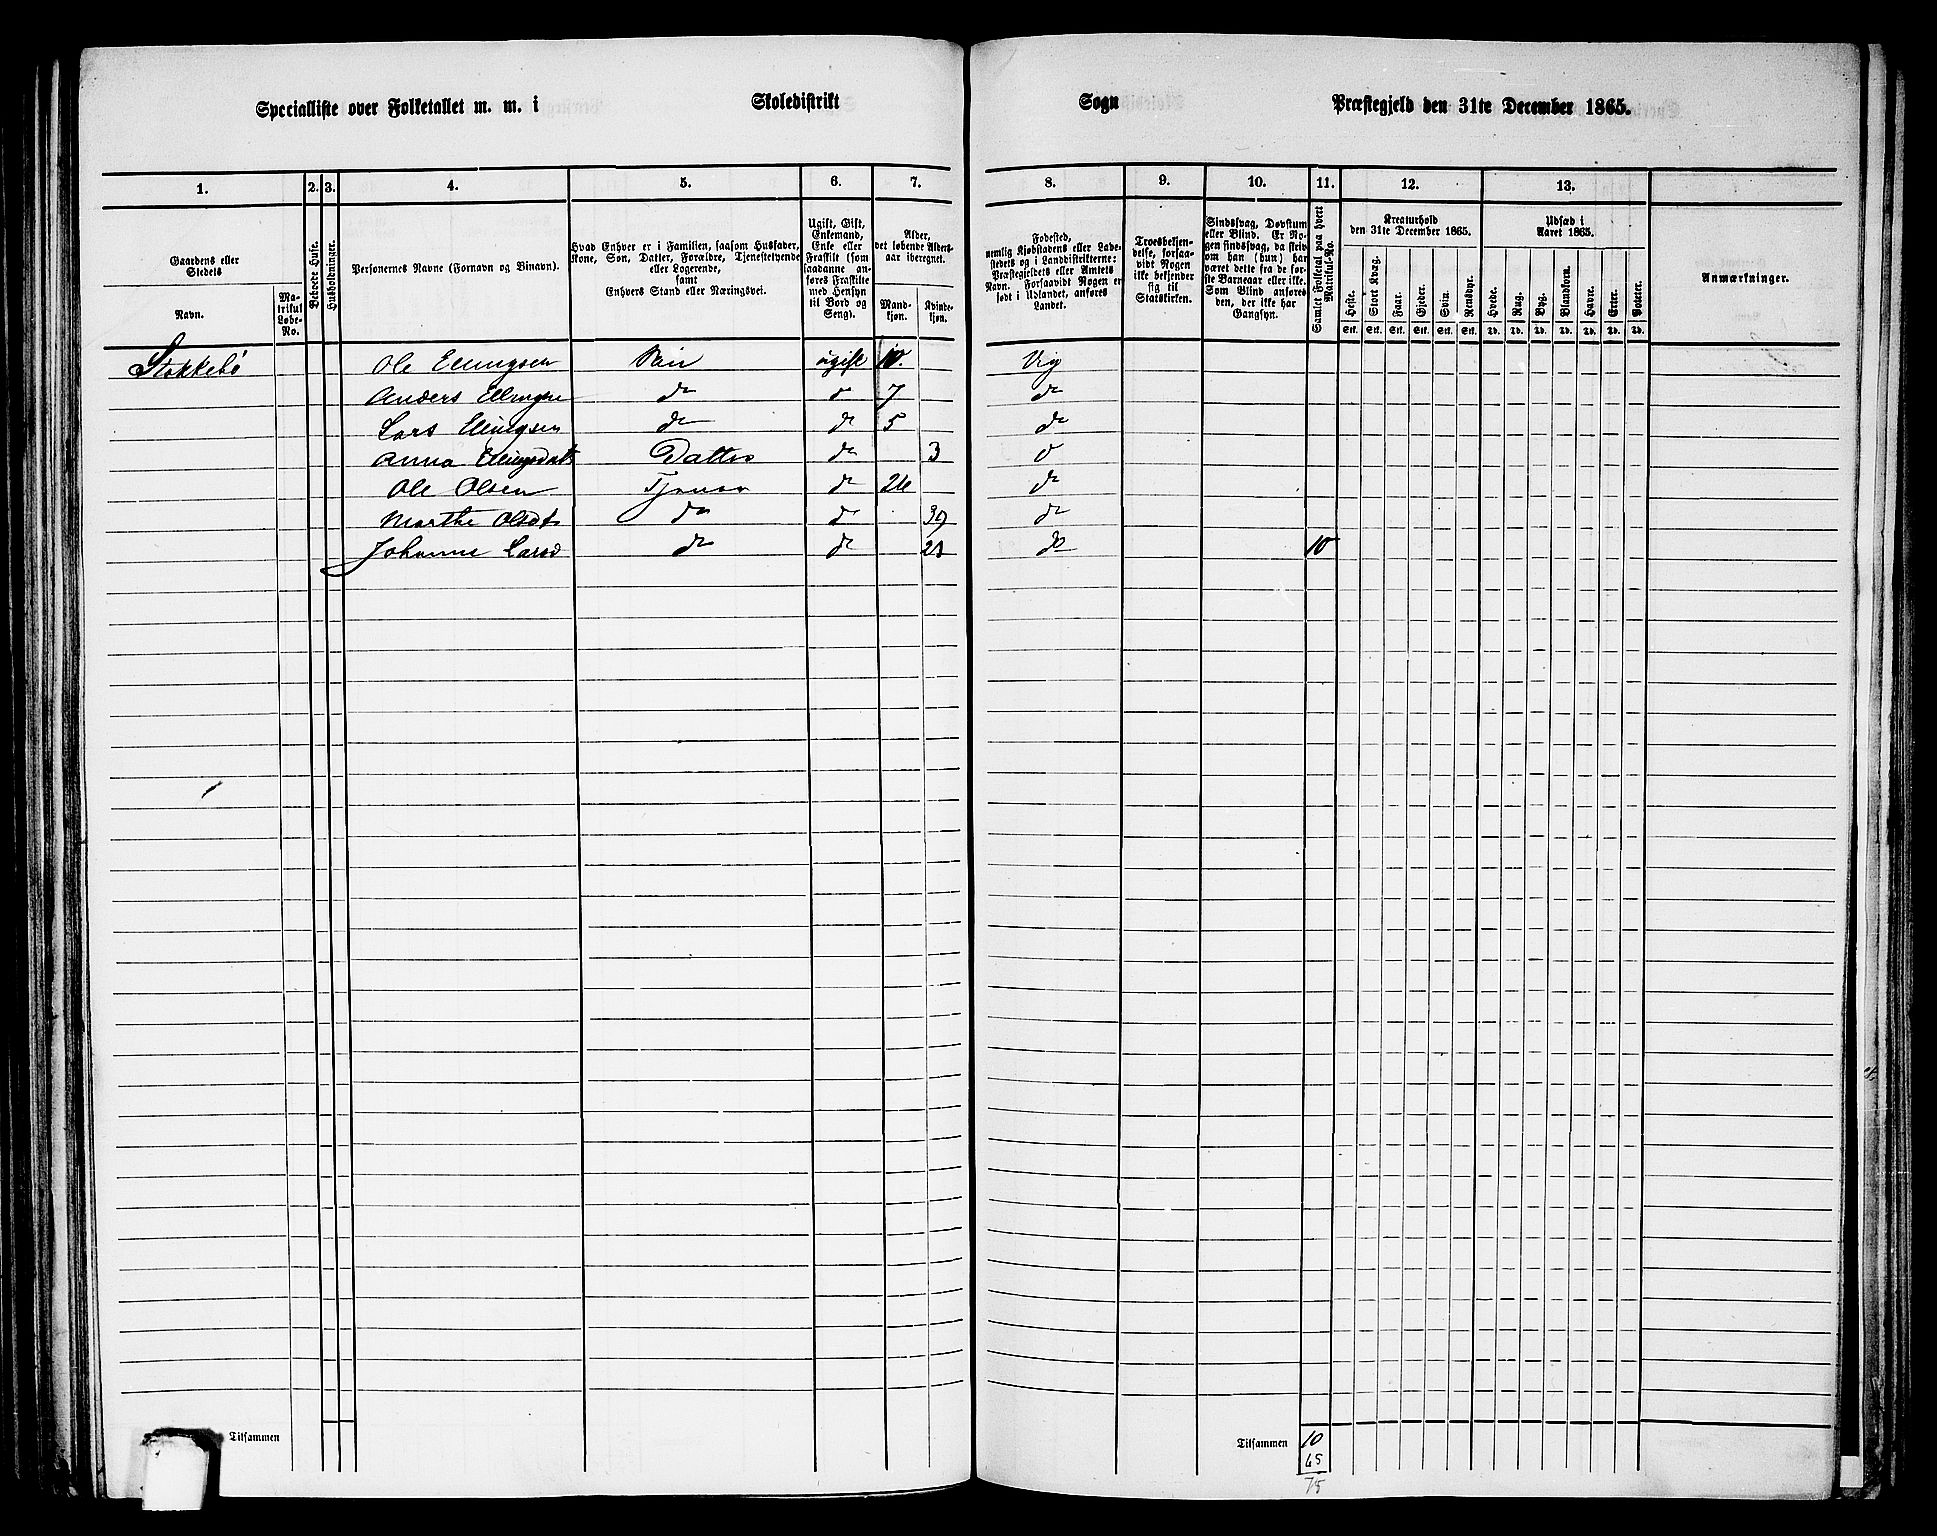 Specialliste over Folketallet m. m. i Skoledistrikt Sogn Præstegjeld den 31te December 1865.
1. 2. 3. 4. 5. 6. 7. 8. 9. 10. 11. 12. 13.
Gaardens eller Stedets
Navn.
Matrikul Løbe-No.
Beboede Huse.
Husholdninger.
Personernes Navne (Fornavn og Binavn).
Hvad Enhver er i Familien, saasom Husfader, Kone, Søn, Datter, Forældre, Tjenestetyende eller Logerende, samt Enhvers Stand eller Næringsvei.
Ugift, Gift, Enkemand, Enke eller Fraskilt (som saadanne anføres Fraskilte med Hensyn til Bord og Seng).
Alder, det løbende Aldersaar iberegnet.
Mandkjøn.
Kvindekjøn.
Fødested, nemlig Kjøbstadens eller Ladestedets og i Landdistrikterne: Præstegjeldets eller Amtets Navn. Forsaavidt Nogen er født i Udlandet, anføres Landet.
Troesbekjendelse, forsaavidt Nogen ikke bekjender sig til Statskirken.
Sindssvag, Døvstum eller Blind. Er Nogen sindssvag, da skriv om han (hun) har været dette fra de første Barneaar eller ikke. Som Blind anføres den, der ikke har Gangsyn.
Samlet Folketal paa hvert Matrikul-No.
Kreaturhold den 31te December 1865.
Heste. Stort Kvæg. Faar. Gjeder. Svin. Rensdyr.
Stk. Stk. Stk. Stk. Stk. Stk.
Udsæd i Aaret 1865.
Hvede. Rug. Byg. Blandkorn. Havre. Erter. Poteter.
Td. Td. Td. Td. Td. Td. Td.
Anmærkninger.
Stokkebö Ole Ellingsen ugift 10. Vig
Anders 7 do
Lars Ellingsen do do 5 do
Anna Ellingsdat Datter do 3
Ole Olsen do do
Marthe Olsdt do do do
Johanne Larsd do do do 10
Tilsammen Tilsammen 10
65
75